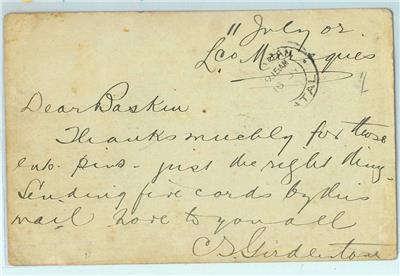 11 July 02.
Lço Marques
Dear Baskin
Thanks muchly for those
ento. pins - just the right thing -
Sending five cards by this
mail Love to you all
C S Girdlestone